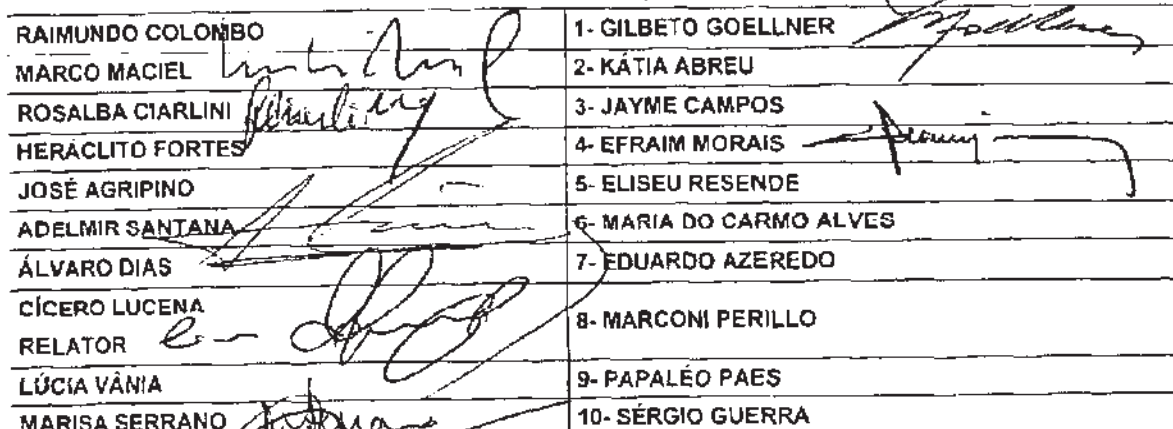 RAIMUNDO COLOMBO
1- GILBETO GOELLNER
MARCO MACIEL
2- KÁTIA ABREU
ROSALBA CIARLINI
3- JAYME CAMPOS
HERÁCLITO FORTES
4- EFRAIM MORAIS
JOSÉ AGRIPINO
5- ELISEU RESENDE
ADELMIR SANTANA
6- MARIA DO CARMO ALVES
ÁLVARO DIAS
7- EDUARDO AZEREDO
CÍCERO LUCENA
RELATOR
8- MARCONI PERILLO
LÚCIA VÂNIA
9- PAPALÉO PAES
MARISA SERRANO
10- SÉRGIO GUERRA